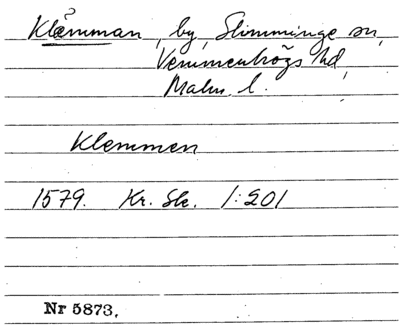 Klämman, by, Slimminge sn,
Vemmenhögs hd,
Malm. l.
Klemmen
1579. Kr. Sk. 1:201
Nr 5873.